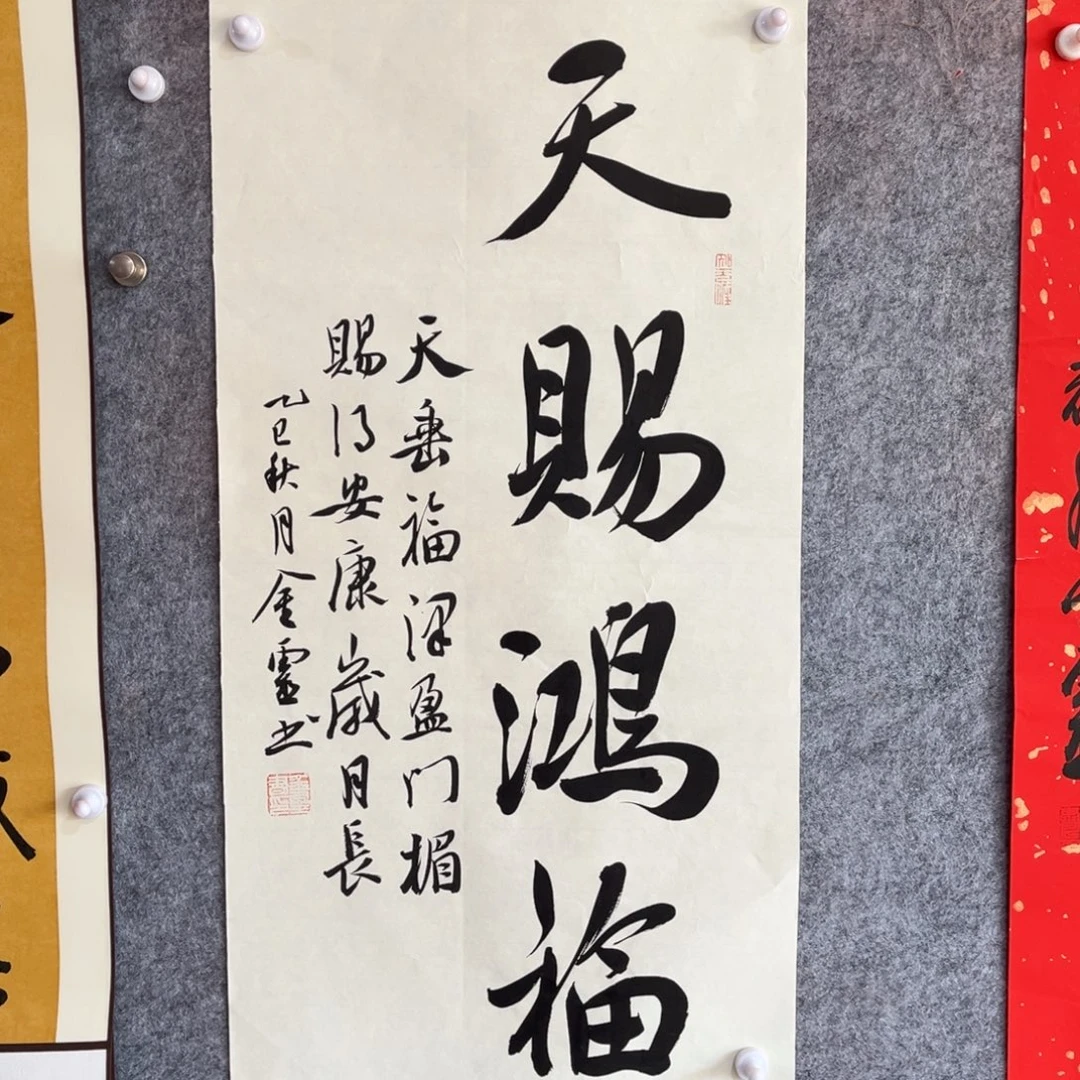 天賜鴻福
天垂福泽盈门楣
賜得安康歲月長
乙巳秋月金靈书